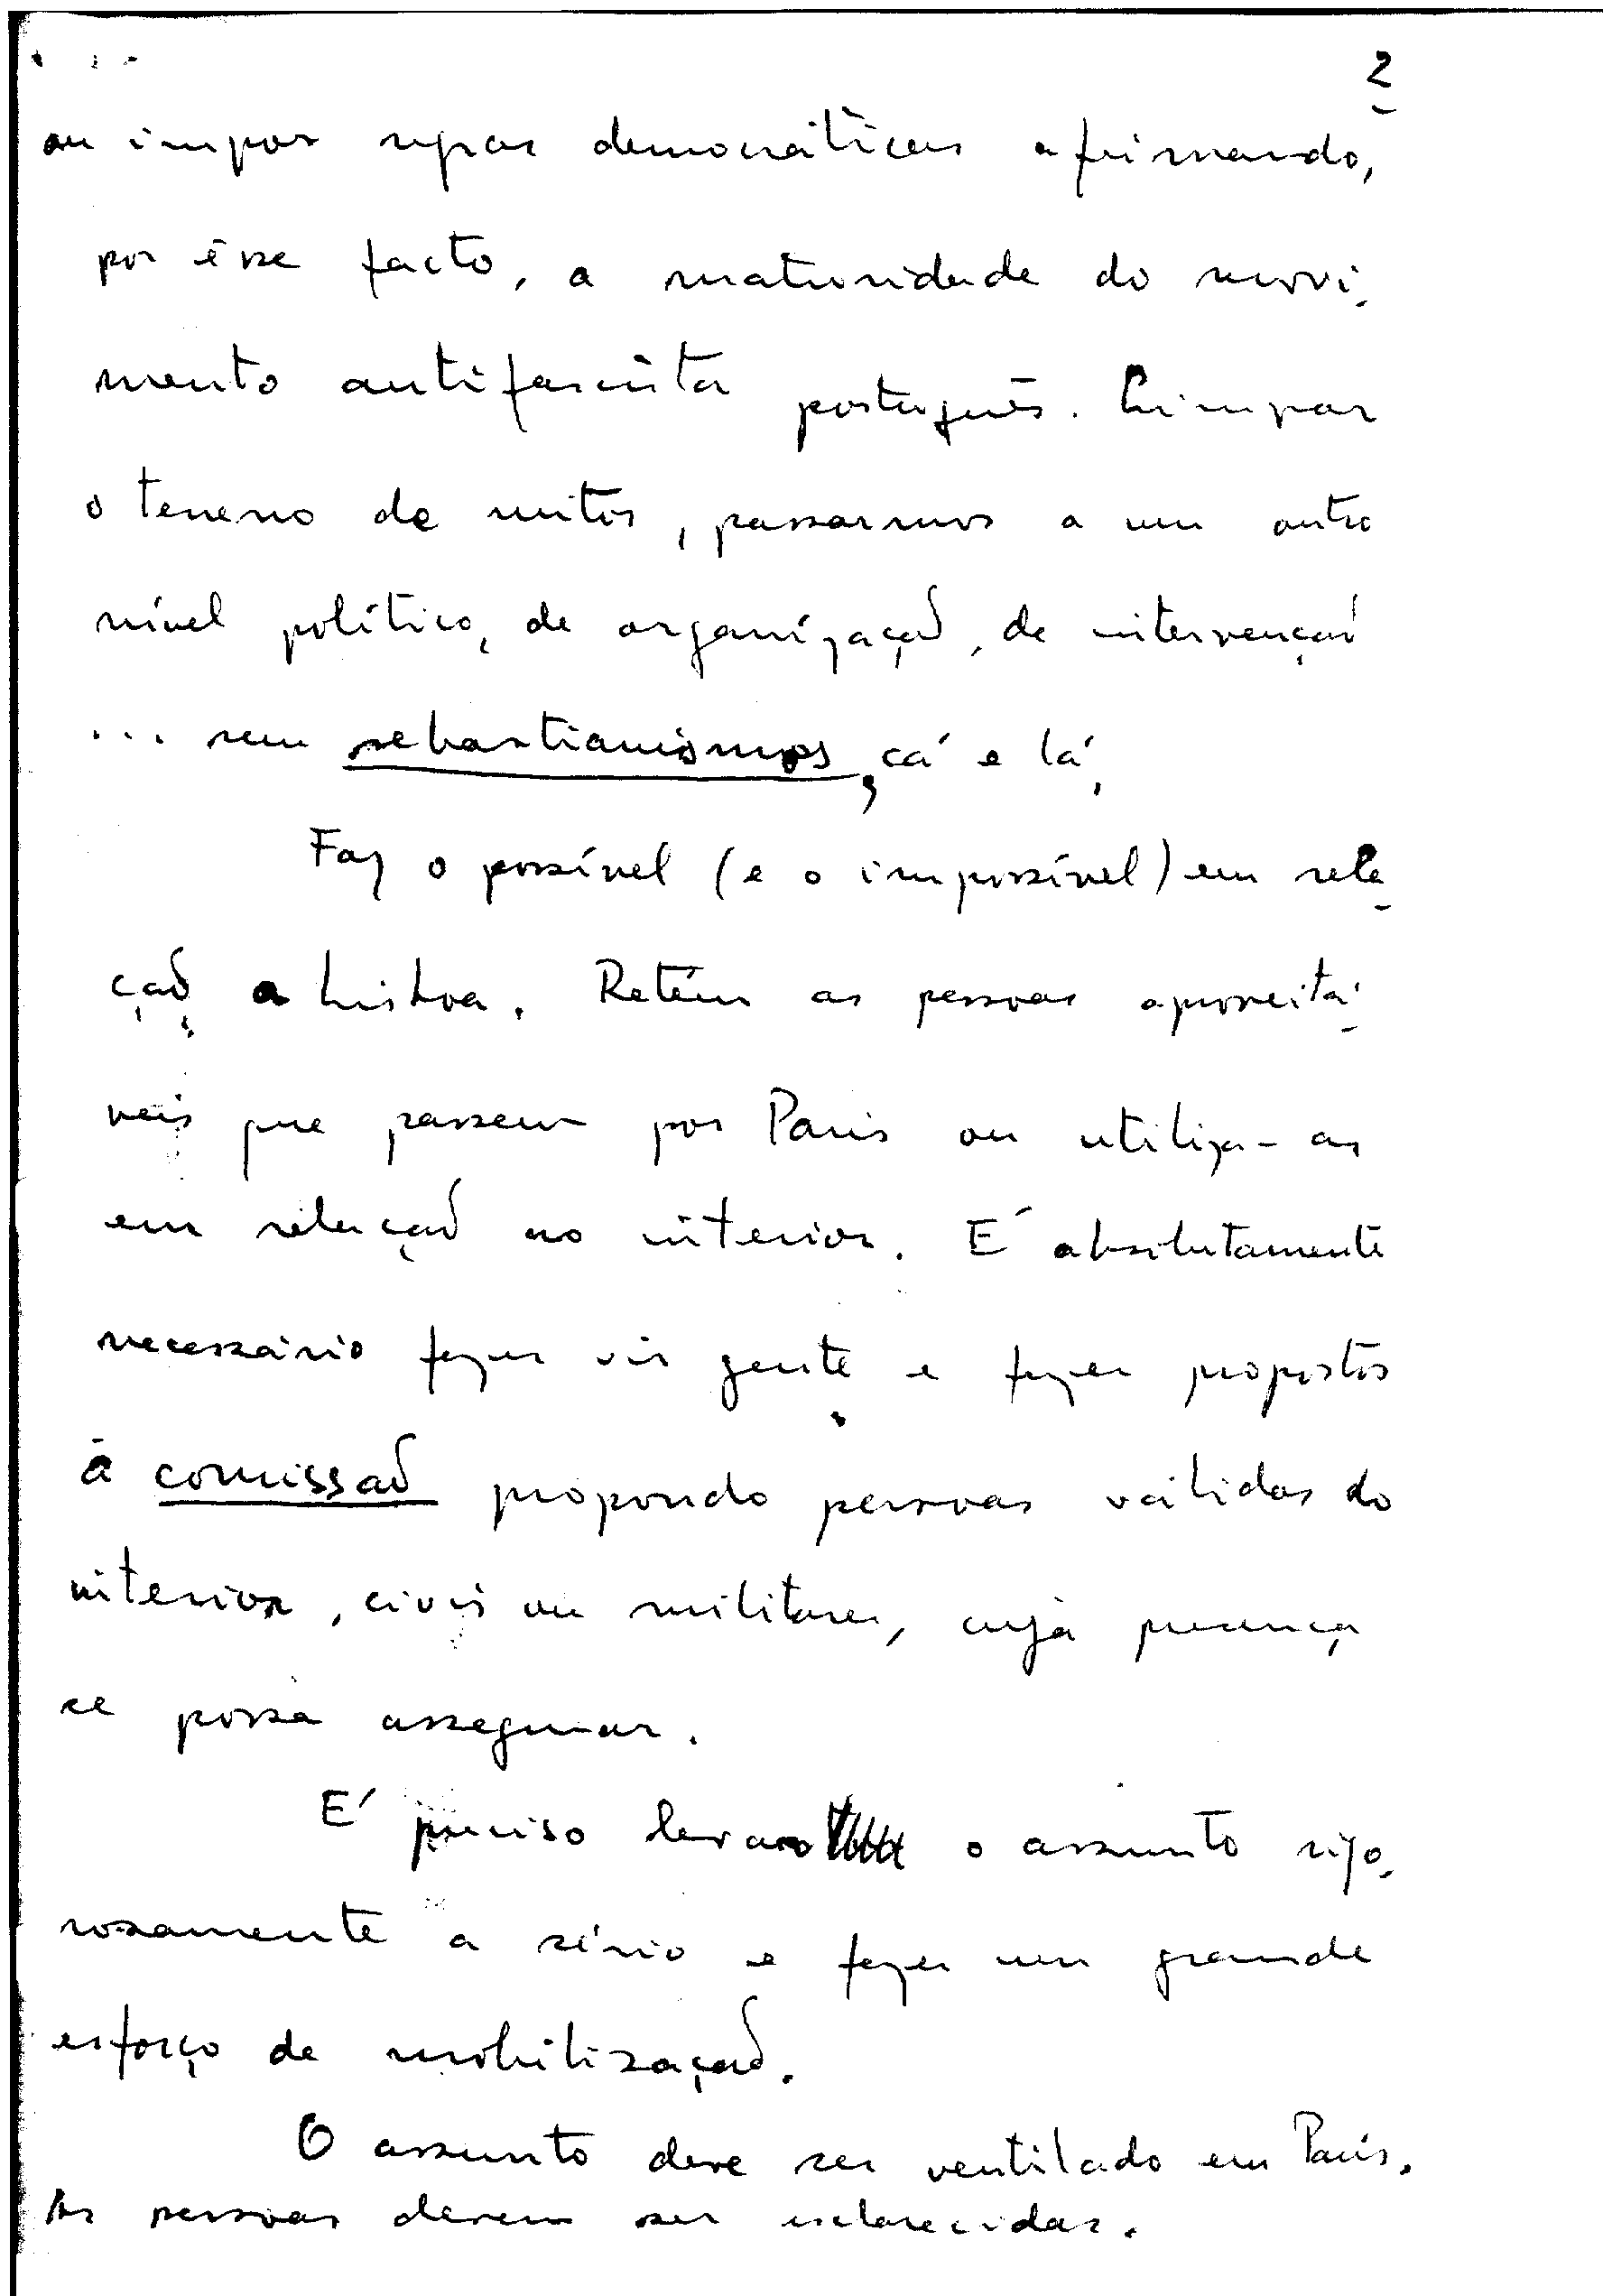 2
ou impor regras democráticas afirmando,
por êsse facto, a maturidade do movi-
mento antifascista português. Limpar
o terreno de mitos, passarmos a um outro
nível político, de organização, de intervenção
... sem sebastianismos, cá e lá,
Faz o possível (e o impossível) em rela-
ção a Lisboa. Retém as pessoas aproveitá-
veis que passem por Paris ou utiliza-as
em relação ao interior. É absolutamente
necessário fazer vir gente e fazer propostas
à comissão propondo pessoas válidas do
interior, civis ou militares, cuja presença
se possa assegurar.
É preciso levar o assunto rigo-
rosamente a sério e fazer um grande
esforço de mobilização.
O assunto deve ser ventilado em Paris.
As pessoas devem ser esclarecidas.